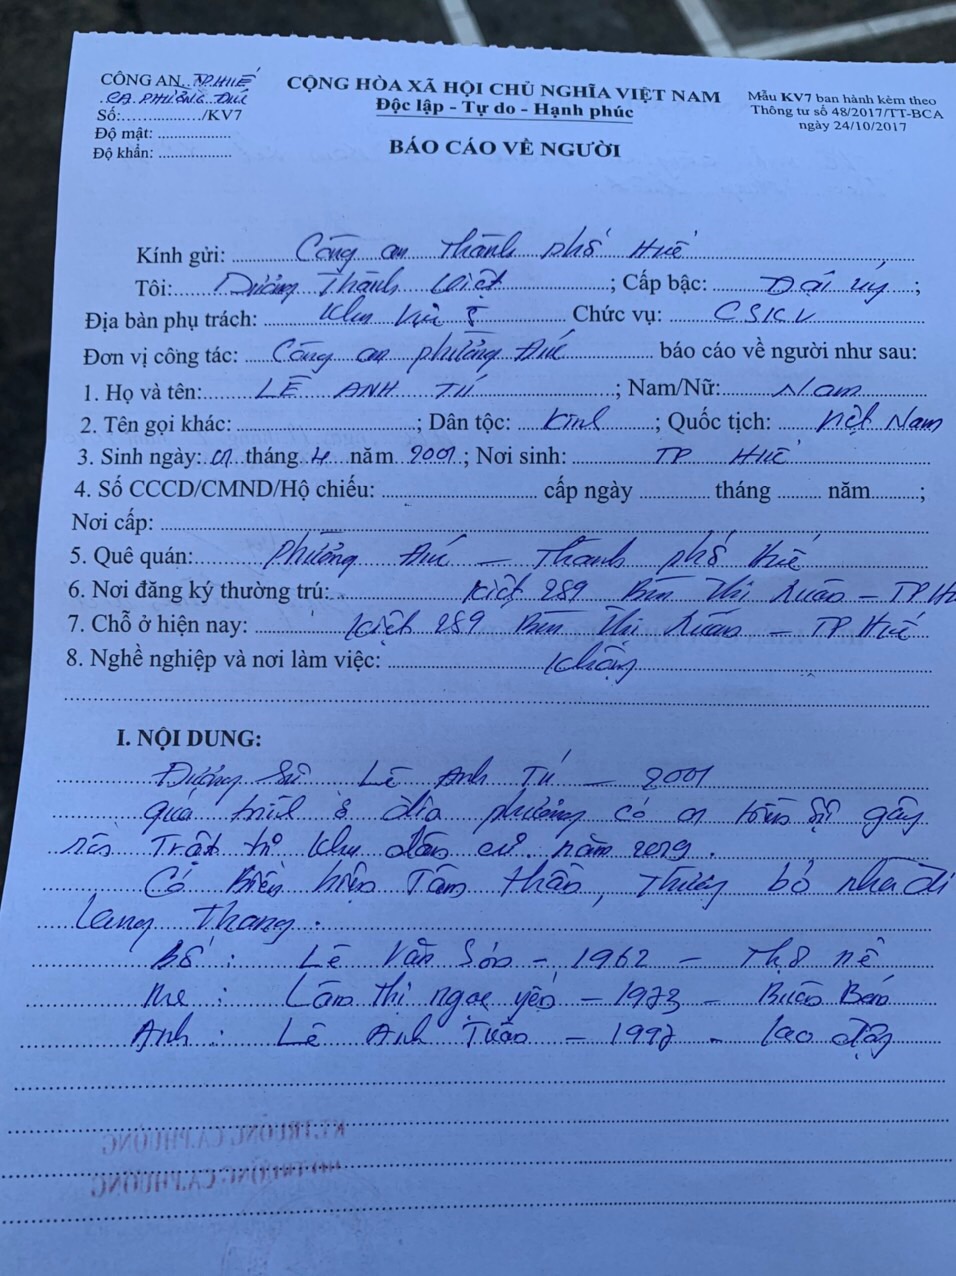 CÔNG AN TP HUẾ
CA. PHƯỜNG ĐÚC
Số:...................../KV7
Độ mật: ..................
Độ khẩn: ..................
CỘNG HÒA XÃ HỘI CHỦ NGHĨA VIỆT NAM
Độc lập - Tự do - Hạnh phúc
Mẫu KV7 ban hành kèm theo
Thông tư số 48/2017/TT-BCA
ngày 24/10/2017
BÁO CÁO VỀ NGƯỜI
Kính gửi: Công an Thành phố Huế
Tôi: Dương Thành Việt; Cấp bậc: Đại úy;
Địa bàn phụ trách: Khu vực 5 Chức vụ: CSKV
Đơn vị công tác: Công an phường Đúc báo cáo về người như sau:
1. Họ và tên: LÊ ANH TÚ; Nam/Nữ: Nam
2. Tên gọi khác: ; Dân tộc: Kinh; Quốc tịch: Việt Nam
3. Sinh ngày: 01 tháng 4 năm 2001; Nơi sinh: TP HUẾ
4. Số CCCD/CMND/Hộ chiếu: cấp ngày tháng năm ;
Nơi cấp:
5. Quê quán: Phường Đúc – Thành phố Huế
6. Nơi đăng ký thường trú: Kiệt 289 Bùi Thị Xuân – TP H
7. Chỗ ở hiện nay: Kiệt 289 Bùi Thị Xuân – TP Huế
8. Nghề nghiệp và nơi làm việc: Không
I. NỘI DUNG:
Đương sự Lê Anh Tú – 2001
quá trình ở địa phương có tiền sự gây
rối Trật tự khu dân cư năm 2019.
Có biểu hiện Tâm thần, Thường bỏ nhà đi
lang thang.
Bố: Lê Văn – 1962 – Thợ nề
Mẹ: Thị Ngọc – 1973 – Buôn Bán
Anh: Lê Anh Tuấn – 1997 – lao động
KT.TRƯỞNG CA.PHƯỜNG
PHÓ TRƯỞNG CA.PHƯỜNG